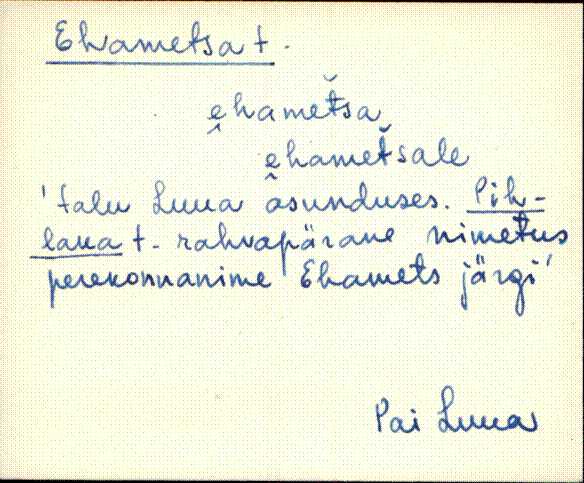 Ehametsa t.
e̯hametša
e̯hametšale
'talu Luua asunduses. Pih-
laka t. rahvapärane nimetus
perekonnanime Ehamets järgi'
Pai Luua